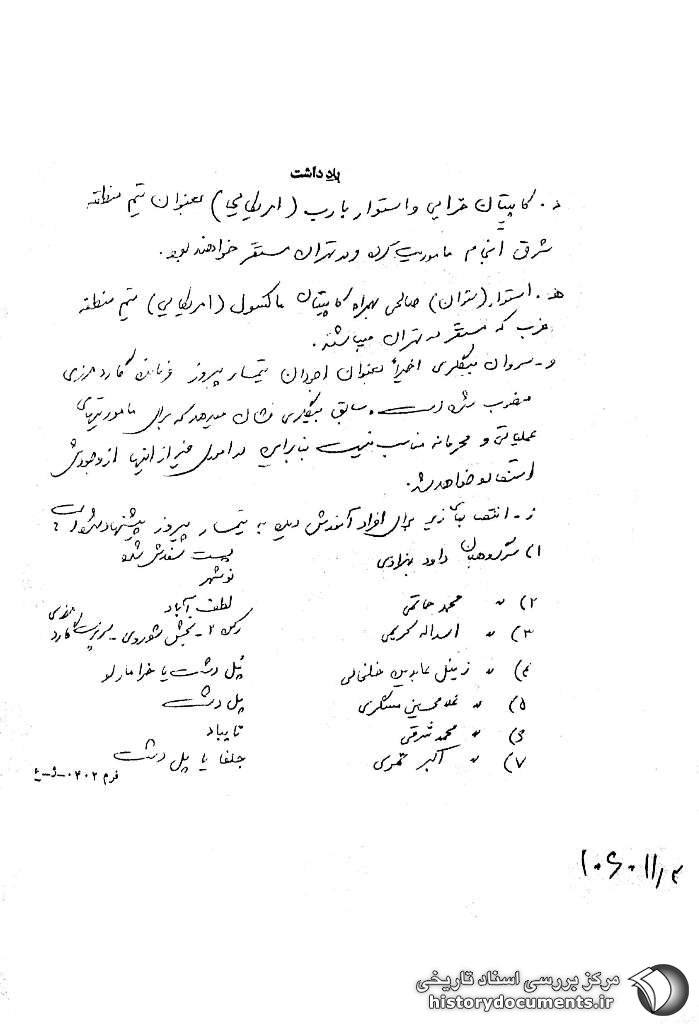 یادداشت
د. کاپیتان خزایی و استوار بارب (امریکایی) بعنوان تیم منطقه
شرق انجام ماموریت کرده و در تهران مستقر خواهند بود.
هـ. استوار (ستوان) صالحی بهمراه کاپیتان ماکسول (امریکایی) تیم منطقه
غرب که مستقر در تهران میباشند.
و- سروان بیگلری اخیراً بعنوان اجودان تیمسار پیروز فرمانده گارد مرزی
منصوب شده است. سابقه بیگلری نشان میدهد که برای ماموریتهای
عملیاتی و محرمانه مناسب نیست بنابراین در اموری غیر از اینها از وجودش
استفاده خواهد شد.
ز- انتصابات زیر برای افراد آموزش دیده به تیمسار پیروز پیشنهاد شده است:
پست سفارش شده
۱) ستوان داود بهزادی
نوشهر
۲) " محمد حاتمی لطف آباد
۳) " اسداله کریمی رکن ۲ - بخش شوروی - گارد مرزی
۴) " زین‌العابدین خلخالی پل دشت یا خدا آفرین
۵) " غلامحسین عسگری پل دشت
۶) " محمد شرقی تایباد
۷) " اکبر جلفا یا پل دشت
فرم ۰۴۰۲-و-ع
۱۰۶۰۱۱/۳
مرکز بررسی اسناد تاریخی
historydocuments.ir